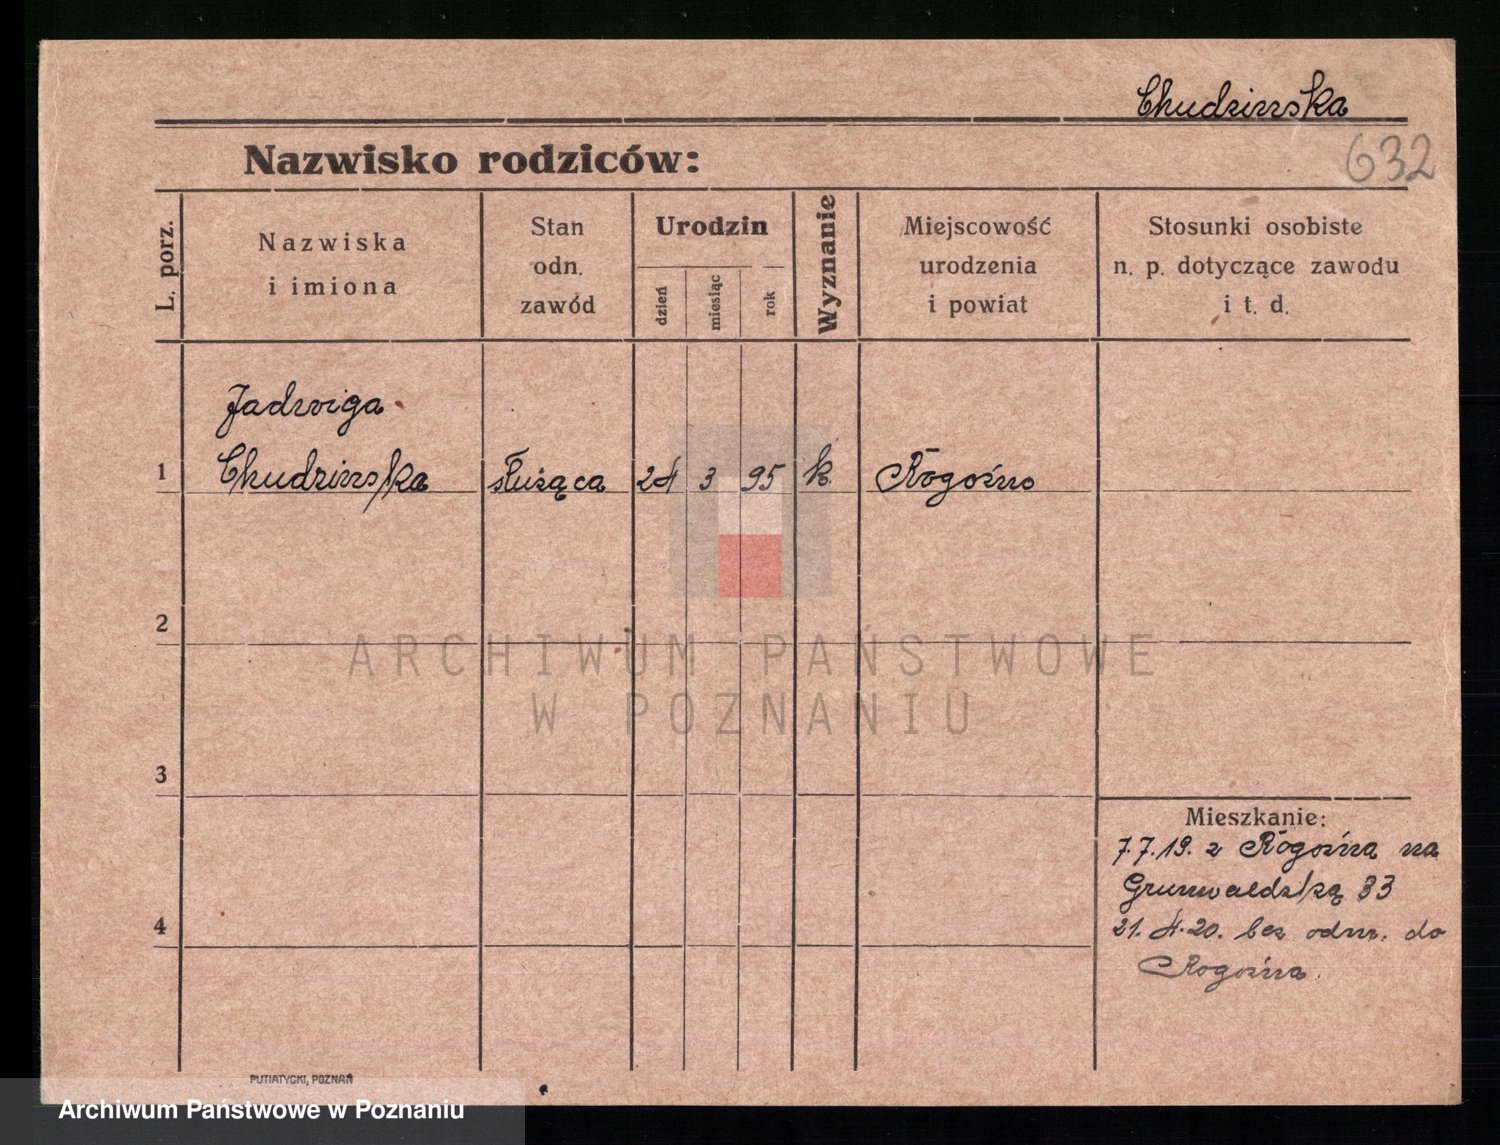 Chudzinska
632
Nazwisko rodziców:
L. porz.
Nazwiska
i imiona
Stan
odn.
zawód
Urodzin
dzień
miesiąc
rok
Wyznanie
Miejscowość
urodzenia
i powiat
Stosunki osobiste
n. p. dotyczące zawodu
i t. d.
Jadwiga
1 Chudzinska służąca 24 3 95 k. Rogoźno
2
3
4
Mieszkanie:
7.7.19. z Rogoźna na
Grunwaldzką 33
21.4.20. bez odm. do
Rogoźna.
PUTIATYCKI, POZNAŃ
ARCHIWUM PAŃSTWOWE
W POZNANIU
Archiwum Państwowe w Poznaniu